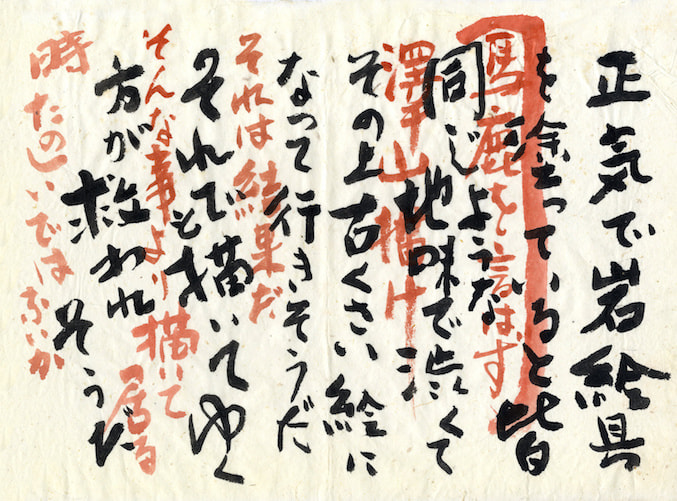 正気で岩絵具
を塗っていると皆
馬鹿を言はず
同じような地味で渋くて
澤山描け
その上古くさい絵に
なって行きそうだ
それは結果だ
それでも描いてゆく
そんな事より描いて居る
方が救われそうだ
時たのしいではないか